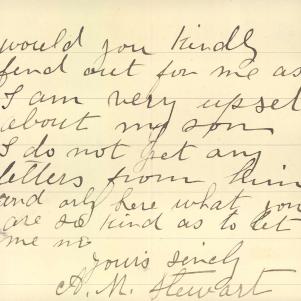 would you kindly
find out for me as
I am very upset
about my son
I do not get any
letters from him
and only here what you
are so kind as to let
me no
yours sincely
A. M. Stewart